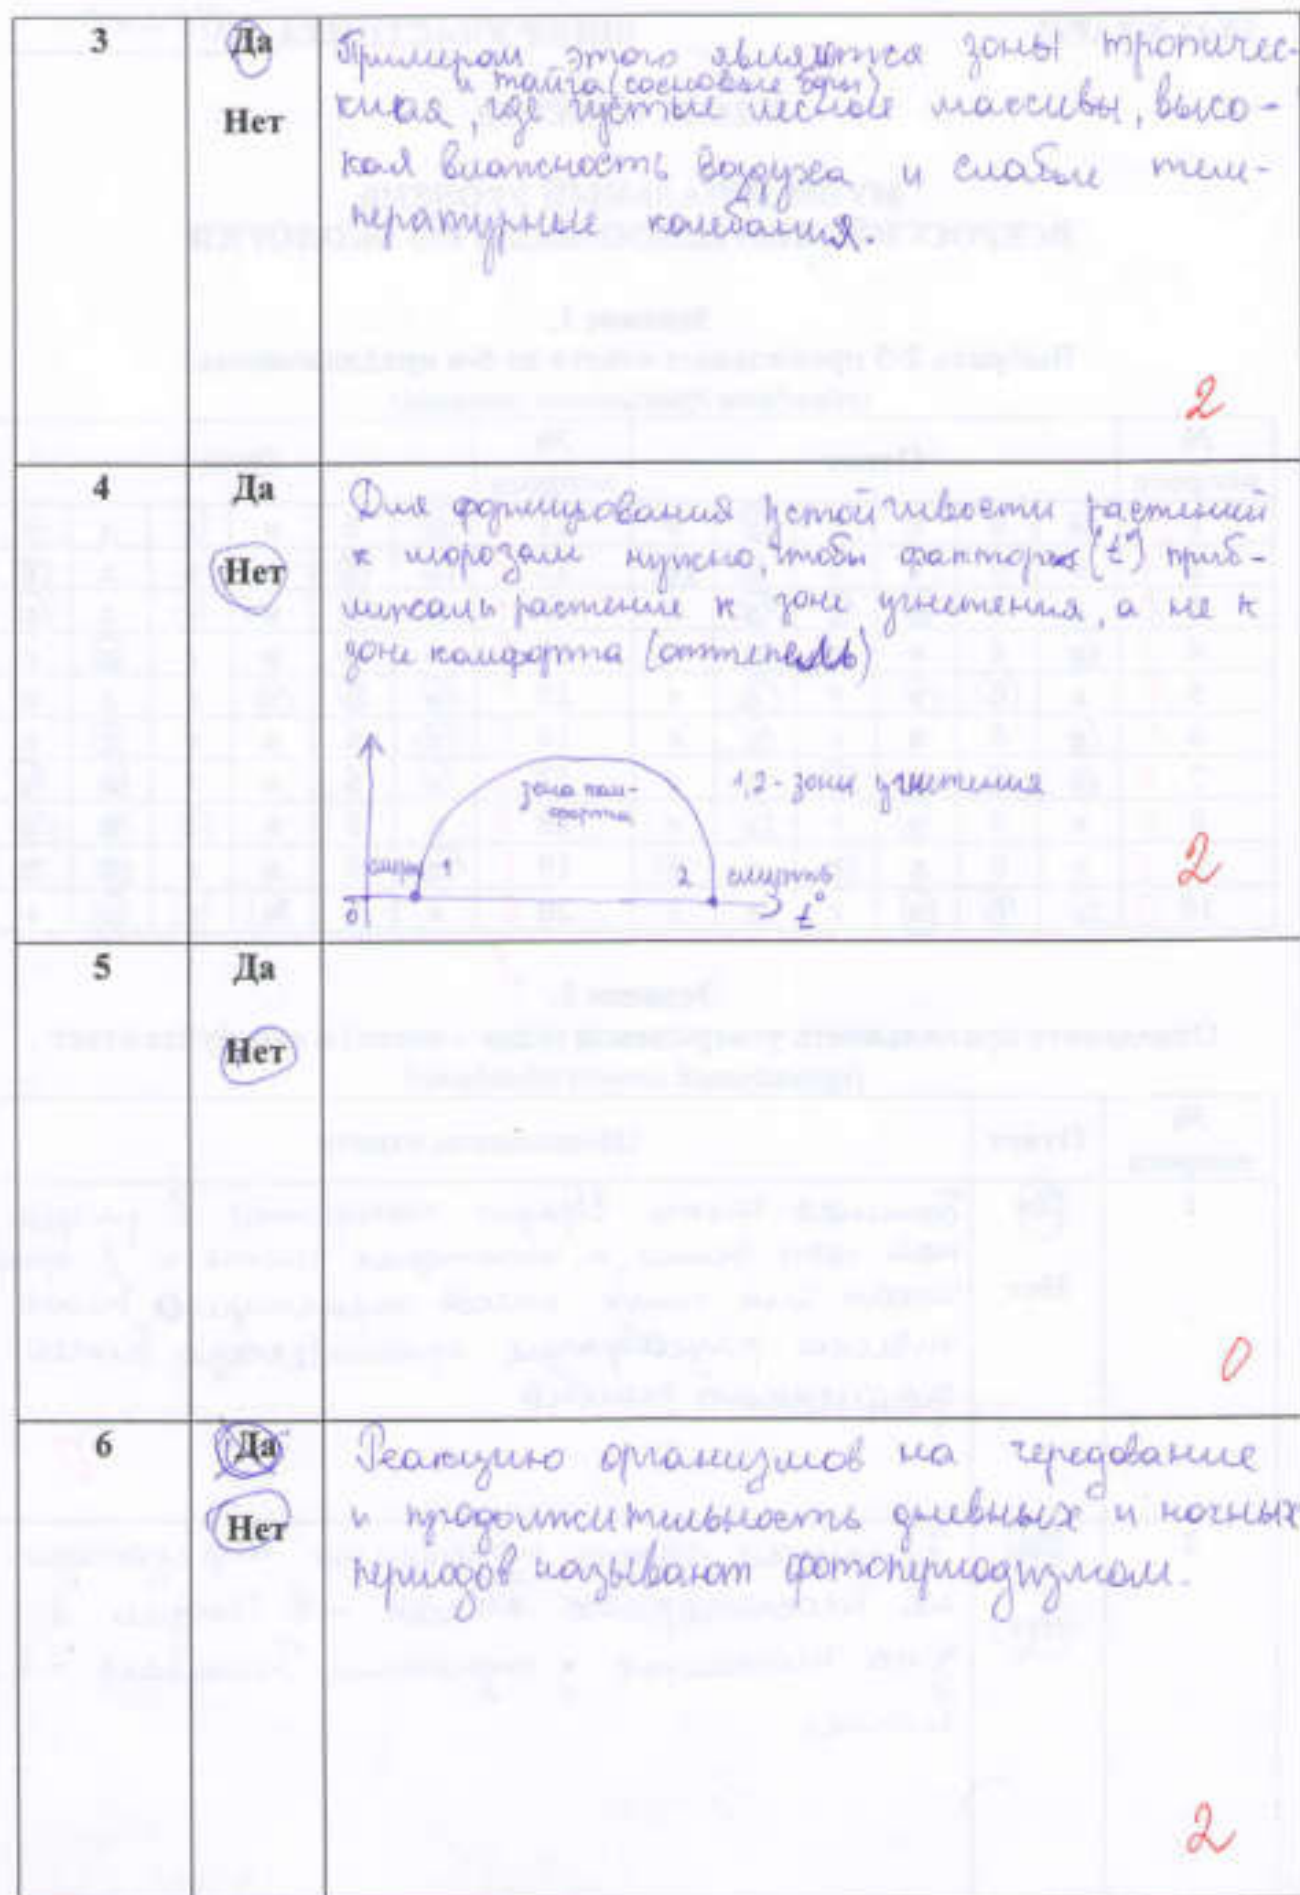 3
Да
Нет
Примером этого являются зоны тропичес-
и тайга (сосновые боры)
кая, где густые лесные массивы, высо-
кая влажность воздуха и слабые тем-
пературные колебания.
2
4
Да
Нет
Для формирования устойчивости растений
к морозам нужно, чтобы факторы (t°) приб-
лижали растение к зоне угнетения, а не к
зоне комфорта (оттепель)
зона ком-
форта
1,2 - зоны угнетения
1
2
смерть
0
t°
2
5
Да
Нет
0
6
Да
Нет
Реакцию организмов на чередование
и продолжительность дневных и ночных
периодов называют фотопериодизмом.
2